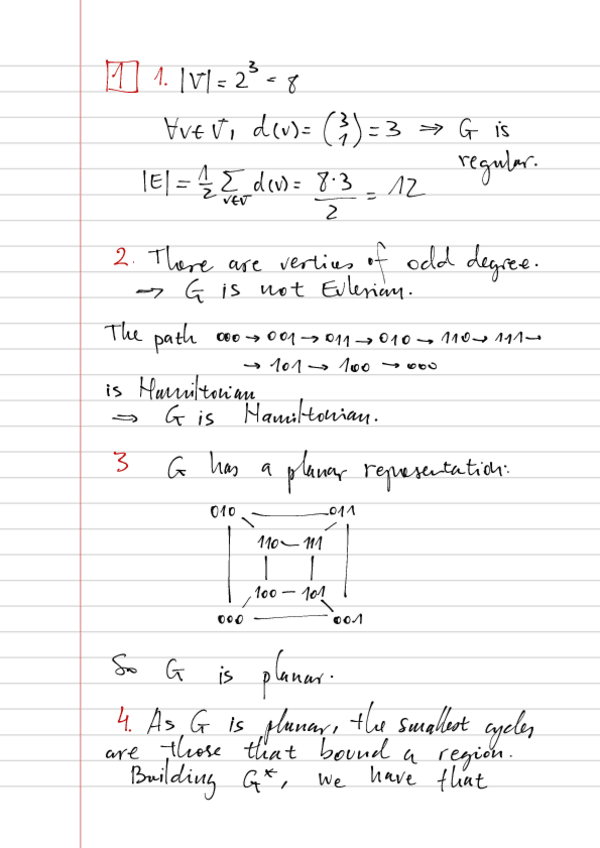 1 1. |V| = 2³ = 8
∀v∈V, d(v) = (3 1) = 3 ⇒ G is
regular.
|E| = 1/2 ∑_{v∈V} d(v) = 8·3/2 = 12
2. There are vertices of odd degree.
→ G is not Eulerian.
The path 000 → 001 → 011 → 010 → 110 → 111 →
→ 101 → 100 → 000
is Hamiltonian
⇒ G is Hamiltonian.
3 G has a planar representation:
010 011
110 111
100 101
000 001
So G is planar.
4. As G is planar, the smallest cycles
are those that bound a region.
Building G*, we have that